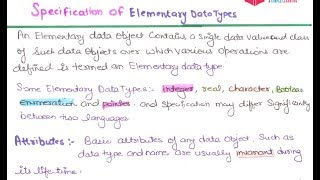 Specification of Elementary DataTypes
An Elementary data Object Contains a Single data Value and class
of Such data Objects over which Various Operations are
defined is termed an Elementary data type.
Some Elementary Data Types:- integer, real, character, Boolean
enumeration and pointer and Specification may differ Significantly
between two languages
Attributes :- Basic attributes of any data Object, Such as
data type and name are usually invariant during
its life time.